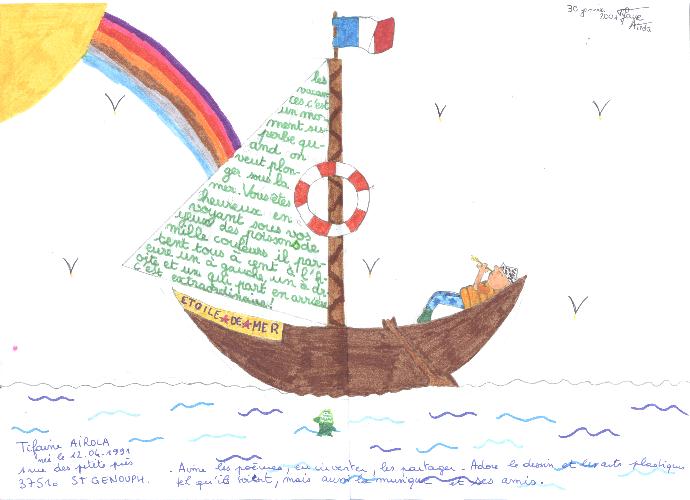 30 janvier
2001
Tifaine
Airola
les
vacan-
ces c'est
un mo-
ment su-
perbe qu-
and on
veut plon-
ger sous la
mer. Vous êtes
heureux en
voyant sous vos
yeux des poissons de
mille couleurs il par-
tent tous à cent à l'h-
eure un à gauche, un à dr-
oite et un qui part en arrière
c'est extraordinaire!
ETOILE DE MER
Tifaine AIROLA
née le 12.04.1991
rue des petits prés
37510 ST GENOUPH.
. Aime les poèmes, en inventer, les partager. Adore le dessin et les arts plastiques
tel qu'ils soient, mais aussi la musique et ses amis.